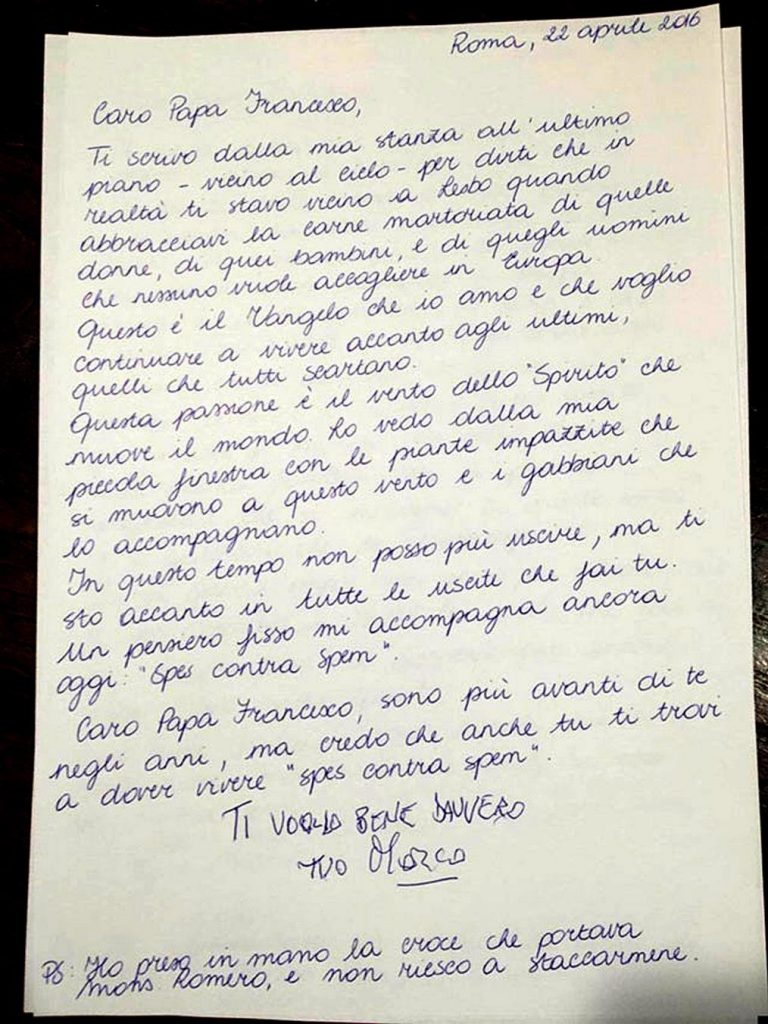 Roma, 22 aprile 2016
Caro Papa Francesco,
Ti scrivo dalla mia stanza all'ultimo
piano - vicino al cielo - per dirti che in
realtà ti stavo vicino a Lesbo quando
abbracciavi la carne martoriata di quelle
donne, di quei bambini, e di quegli uomini
che nessuno vuole accogliere in Europa.
Questo è il Vangelo che io amo e che voglio
continuare a vivere accanto agli ultimi,
quelli che tutti scartano.
Questa passione è il vento dello "Spirito" che
muove il mondo. Lo vedo dalla mia
piccola finestra con le piante impazzite che
si muovono a questo vento e i gabbiani che
lo accompagnano.
In questo tempo non posso più uscire, ma ti
sto accanto in tutte le uscite che fai tu.
Un pensiero fisso mi accompagna ancora
oggi: "Spes contra Spem".
Caro Papa Francesco, sono più avanti di te
negli anni, ma credo che anche tu ti trovi
a dover vivere "spes contra spem".
TI VOGLIO BENE DAVVERO
TUO Marco
PS: Ho preso in mano la croce che portava
mons Romero, e non riesco a staccarmene.